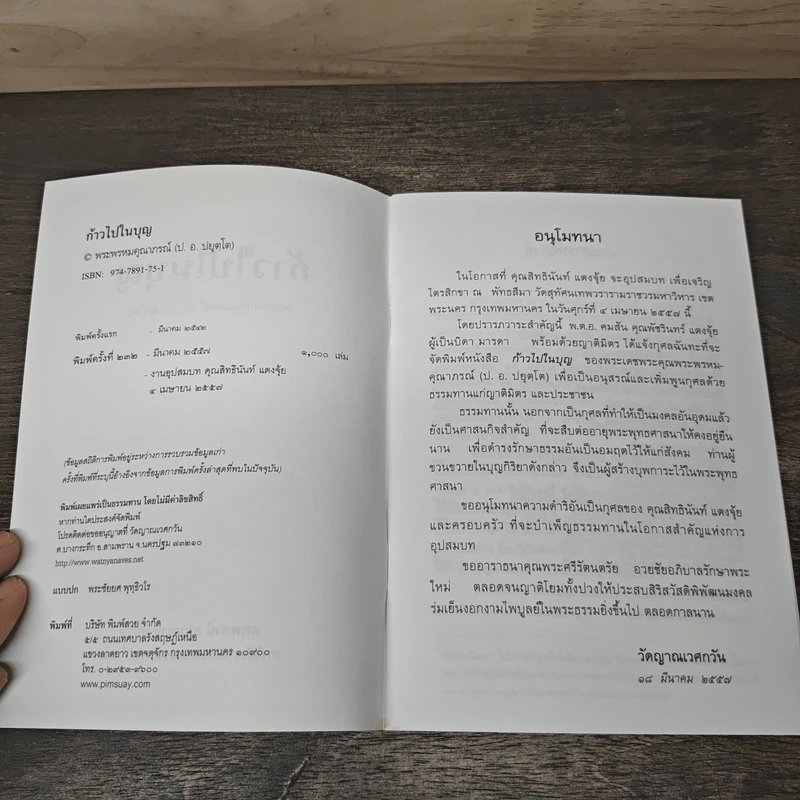 ก้าวไปในบุญ
© พระพรหมคุณาภรณ์ (ป. อ. ปยุตฺโต)
ISBN: 974-7891-75-1
พิมพ์ครั้งแรก - มีนาคม ๒๕๔๒
พิมพ์ครั้งที่ ๒๓๒ - มีนาคม ๒๕๕๗ ๑,๐๐๐ เล่ม
- งานอุปสมบท คุณสิทธินันท์ แตงจุ้ย
๔ เมษายน ๒๕๕๗
(ข้อมูลสถิติการพิมพ์อยู่ระหว่างการรวบรวมข้อมูลเก่า
ครั้งที่พิมพ์ที่ระบุนี้อ้างอิงจากข้อมูลการพิมพ์ครั้งล่าสุดที่พบในปัจจุบัน)
พิมพ์เผยแพร่เป็นธรรมทาน โดยไม่มีค่าลิขสิทธิ์
หากท่านใดประสงค์จัดพิมพ์
โปรดติดต่อขออนุญาตที่ วัดญาณเวศกวัน
ต.บางกระทึก อ.สามพราน จ.นครปฐม ๗๓๒๑๐
http://www.watnyanaves.net
แบบปก พระชัยยศ พุทฺธิวโร
พิมพ์ที่ บริษัท พิมพ์สวย จำกัด
๕/๕ ถนนเทศบาลรังสฤษฏ์เหนือ
แขวงลาดยาว เขตจตุจักร กรุงเทพมหานคร ๑๐๙๐๐
โทร. ๐-๒๙๕๓-๙๖๐๐
www.pimsuay.com
อนุโมทนา
ในโอกาสที่ คุณสิทธินันท์ แตงจุ้ย จะอุปสมบท เพื่อเจริญ
ไตรสิกขา ณ พัทธสีมา วัดสุทัศนเทพวรารามราชวรมหาวิหาร เขต
พระนคร กรุงเทพมหานคร ในวันศุกร์ที่ ๔ เมษายน ๒๕๕๗ นี้
โดยปรารภวาระสำคัญนี้ พ.ต.อ. คมสัน คุณพัชรินทร์ แตงจุ้ย
ผู้เป็นบิดา มารดา พร้อมด้วยญาติมิตร ได้แจ้งกุศลฉันทะที่จะ
จัดพิมพ์หนังสือ ก้าวไปในบุญ ของพระเดชพระคุณพระพรหม-
คุณาภรณ์ (ป. อ. ปยุตฺโต) เพื่อเป็นอนุสรณ์และเพิ่มพูนกุศลด้วย
ธรรมทานแก่ญาติมิตร และประชาชน
ธรรมทานนั้น นอกจากเป็นกุศลที่ทำให้เป็นมงคลอันอุดมแล้ว
ยังเป็นศาสนกิจสำคัญ ที่จะสืบต่ออายุพระพุทธศาสนาให้คงอยู่ยืน
นาน เพื่อดำรงรักษาธรรมอันเป็นอมฤตไว้ให้แก่สังคม ท่านผู้
ขวนขวายในบุญกิริยาดังกล่าว จึงเป็นผู้สร้างบุพการะไว้ในพระพุทธ
ศาสนา
ขออนุโมทนาความดำริอันเป็นกุศลของ คุณสิทธินันท์ แตงจุ้ย
และครอบครัว ที่จะบำเพ็ญธรรมทานในโอกาสสำคัญแห่งการ
อุปสมบท
ขออาราธนาคุณพระศรีรัตนตรัย อวยชัยอภิบาลรักษาพระ
ใหม่ ตลอดจนญาติโยมทั้งปวงให้ประสบสิริสวัสดิ์พิพัฒนมงคล
ร่มเย็นงอกงามไพบูลย์ในพระธรรมยิ่งขึ้นไป ตลอดกาลนาน
วัดญาณเวศกวัน
๑๘ มีนาคม ๒๕๕๗